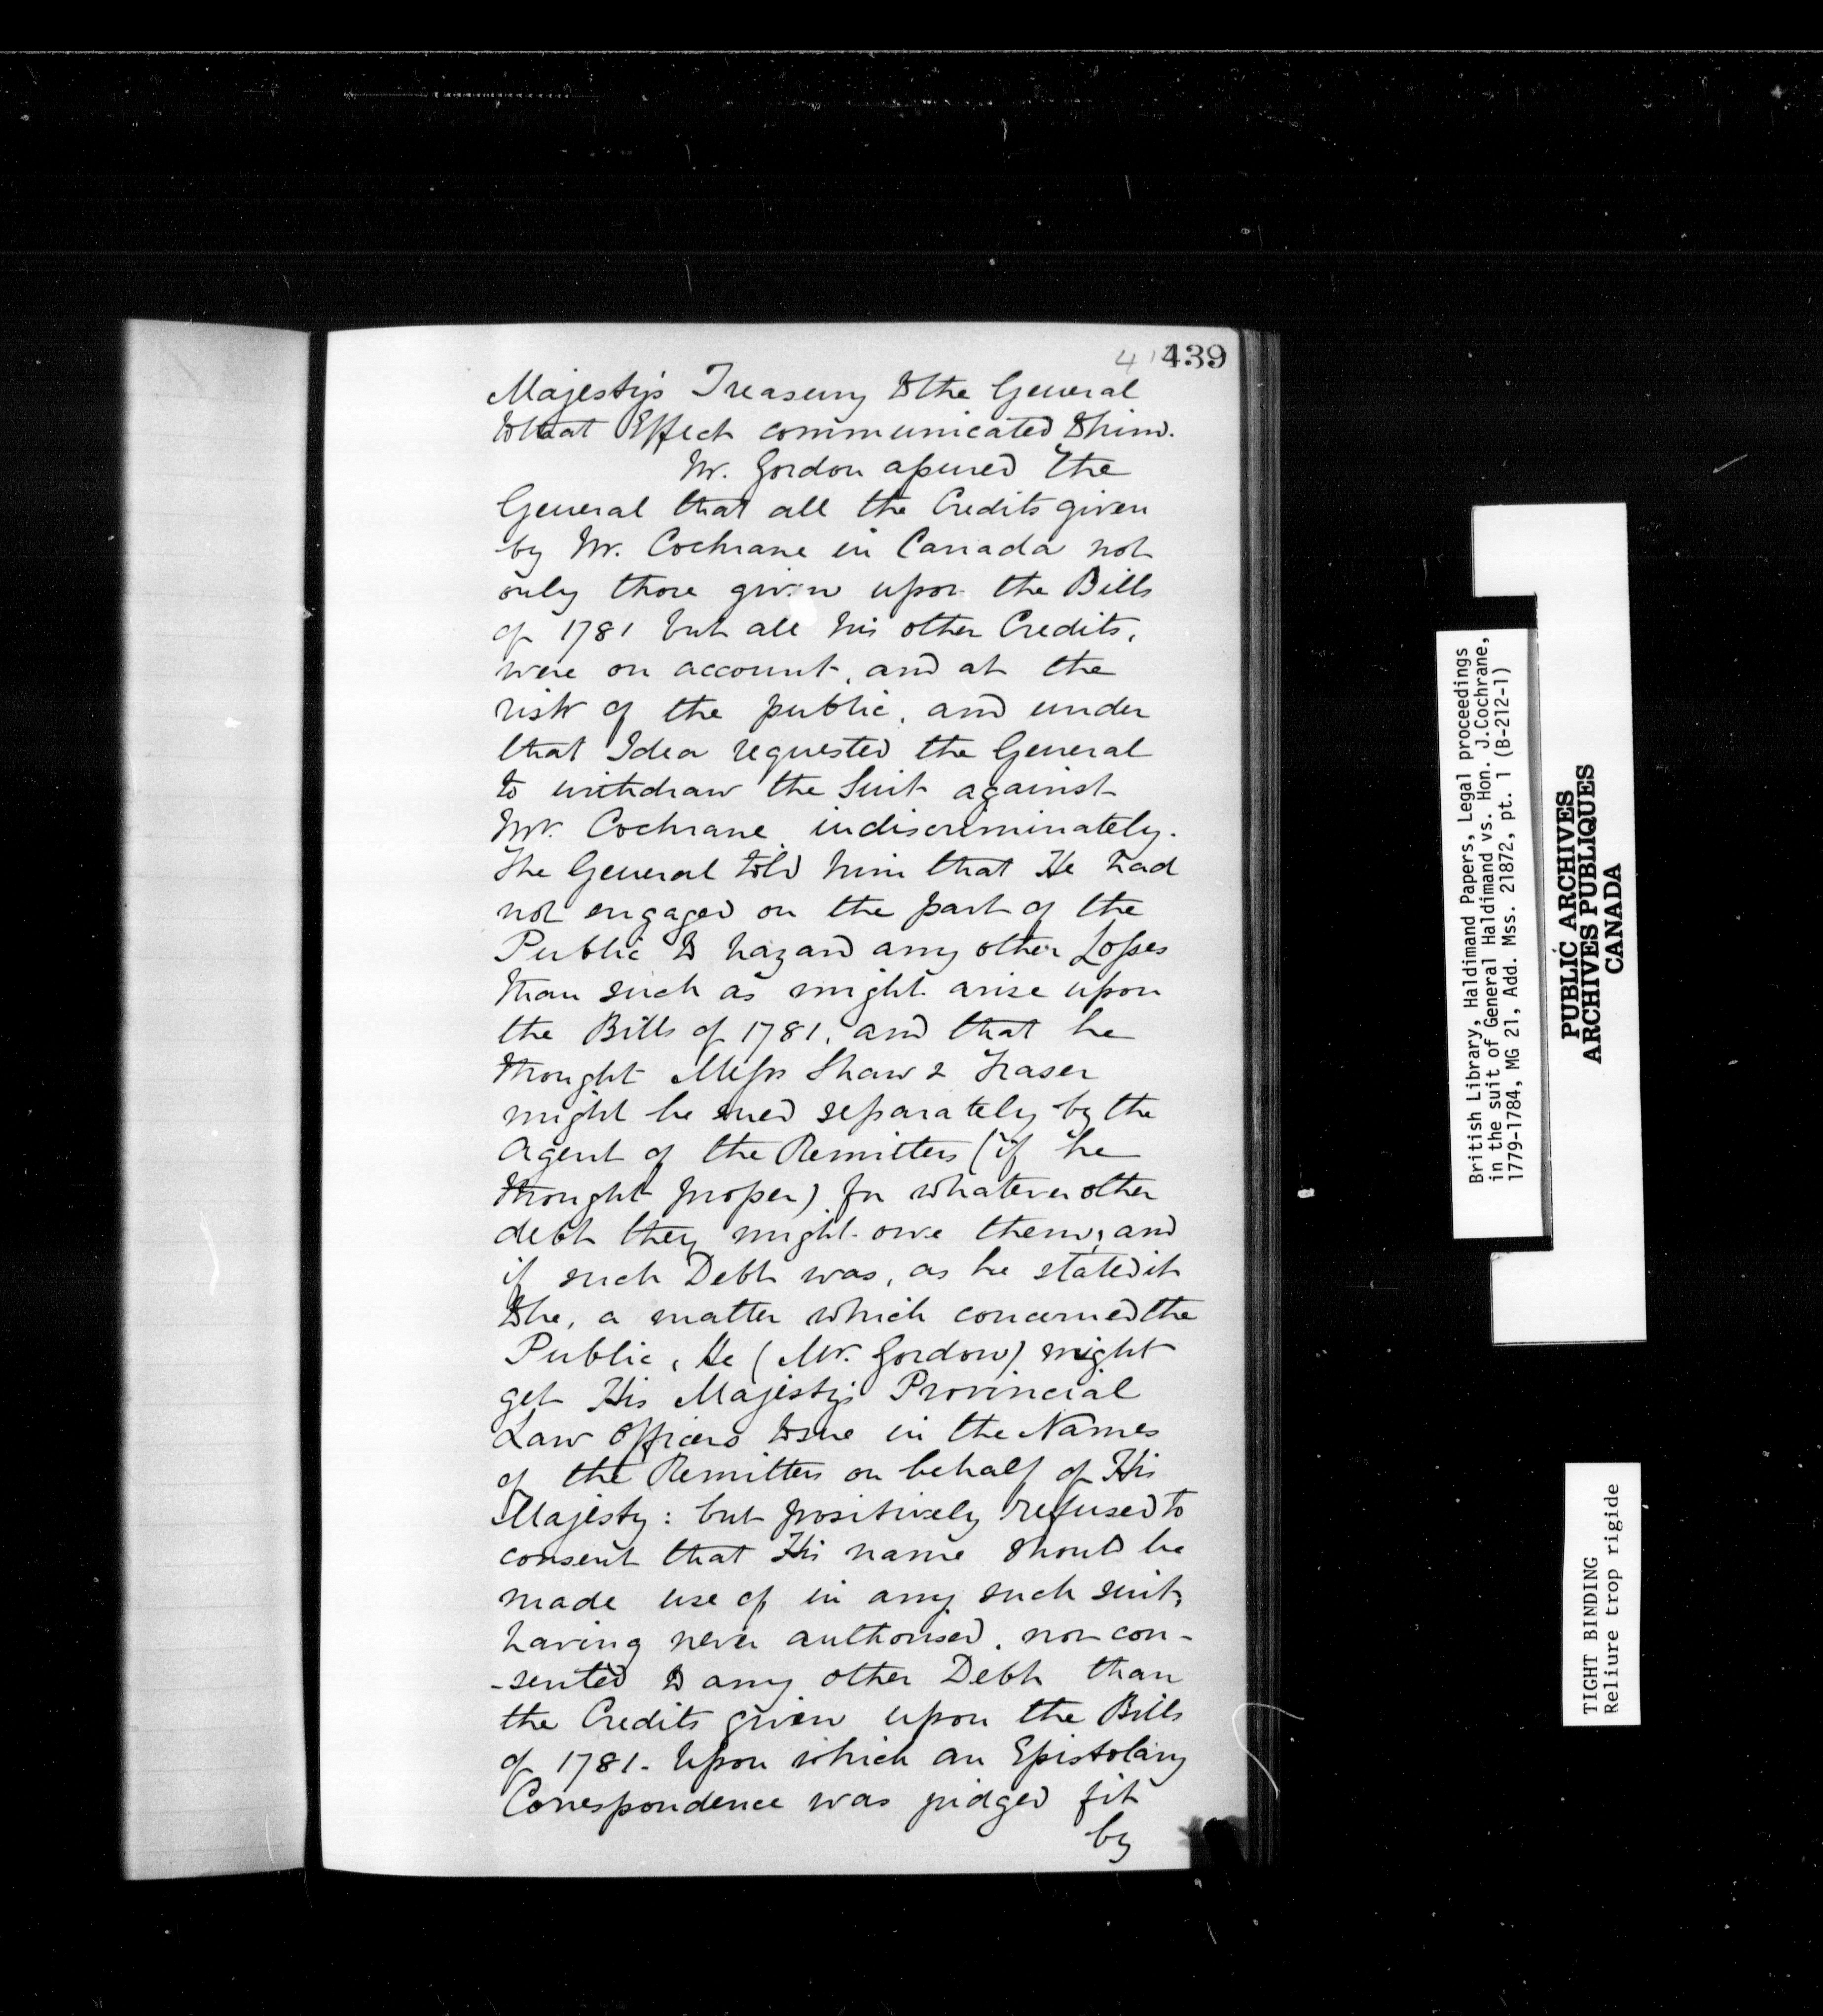 439
Majesty's Treasury to the General
to that Effect communicated to him.
Mr. Gordon assured the
General that all the Credits given
by Mr. Cochrane in Canada not
only those given upon the Bills
of 1781 but all his other Credits,
were on account, and at the
risk of the public, and under
that Idea requested the General
to withdraw the Suit against
Mr. Cochrane indiscriminately.
The General told him that He had
not engaged on the part of the
Public to hazard any other Losses
than such as might arise upon
the Bills of 1781, and that he
thought Messrs Shaw & Fraser
might be sued separately by the
Agent of the Remitters (if he
thought proper) for whatever other
debt they might owe them, and
if such Debt was, as he stated it
to be, a matter which concerned the
Public, He (Mr. Gordon) might
get His Majesty's Provincial
Law Officers to sue in the Names
of the Remitters on behalf of His
Majesty: but positively refused to
consent that His name should be
made use of in any such suit,
having never authorised, nor con-
-sented to any other Debt than
the Credits given upon the Bills
of 1781. Upon which an Epistolary
Correspondence was judged fit
by
British Library, Haldimand Papers, Legal proceedings
in the suit of General Haldimand vs. Hon. J.Cochrane,
1779-1784, MG 21, Add. Mss. 21872, pt. 1 (B-212-1)
PUBLIC ARCHIVES
ARCHIVES PUBLIQUES
CANADA
TIGHT BINDING
Reliure trop rigide